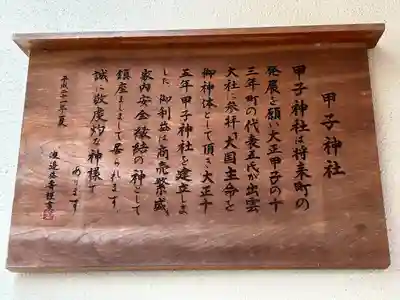 甲子神社
甲子神社は将来町の
発展を願い大正甲子の十
三年町の代表五氏が出雲
大社に参拝し大国主命を
御神体として頂き大正十
五年甲子神社を建立しま
した御利益は商売繁盛
家内安全縁結の神として
鎮座ましまして居られます
誠に数度灼な神様で
あります
平成二十一年夏